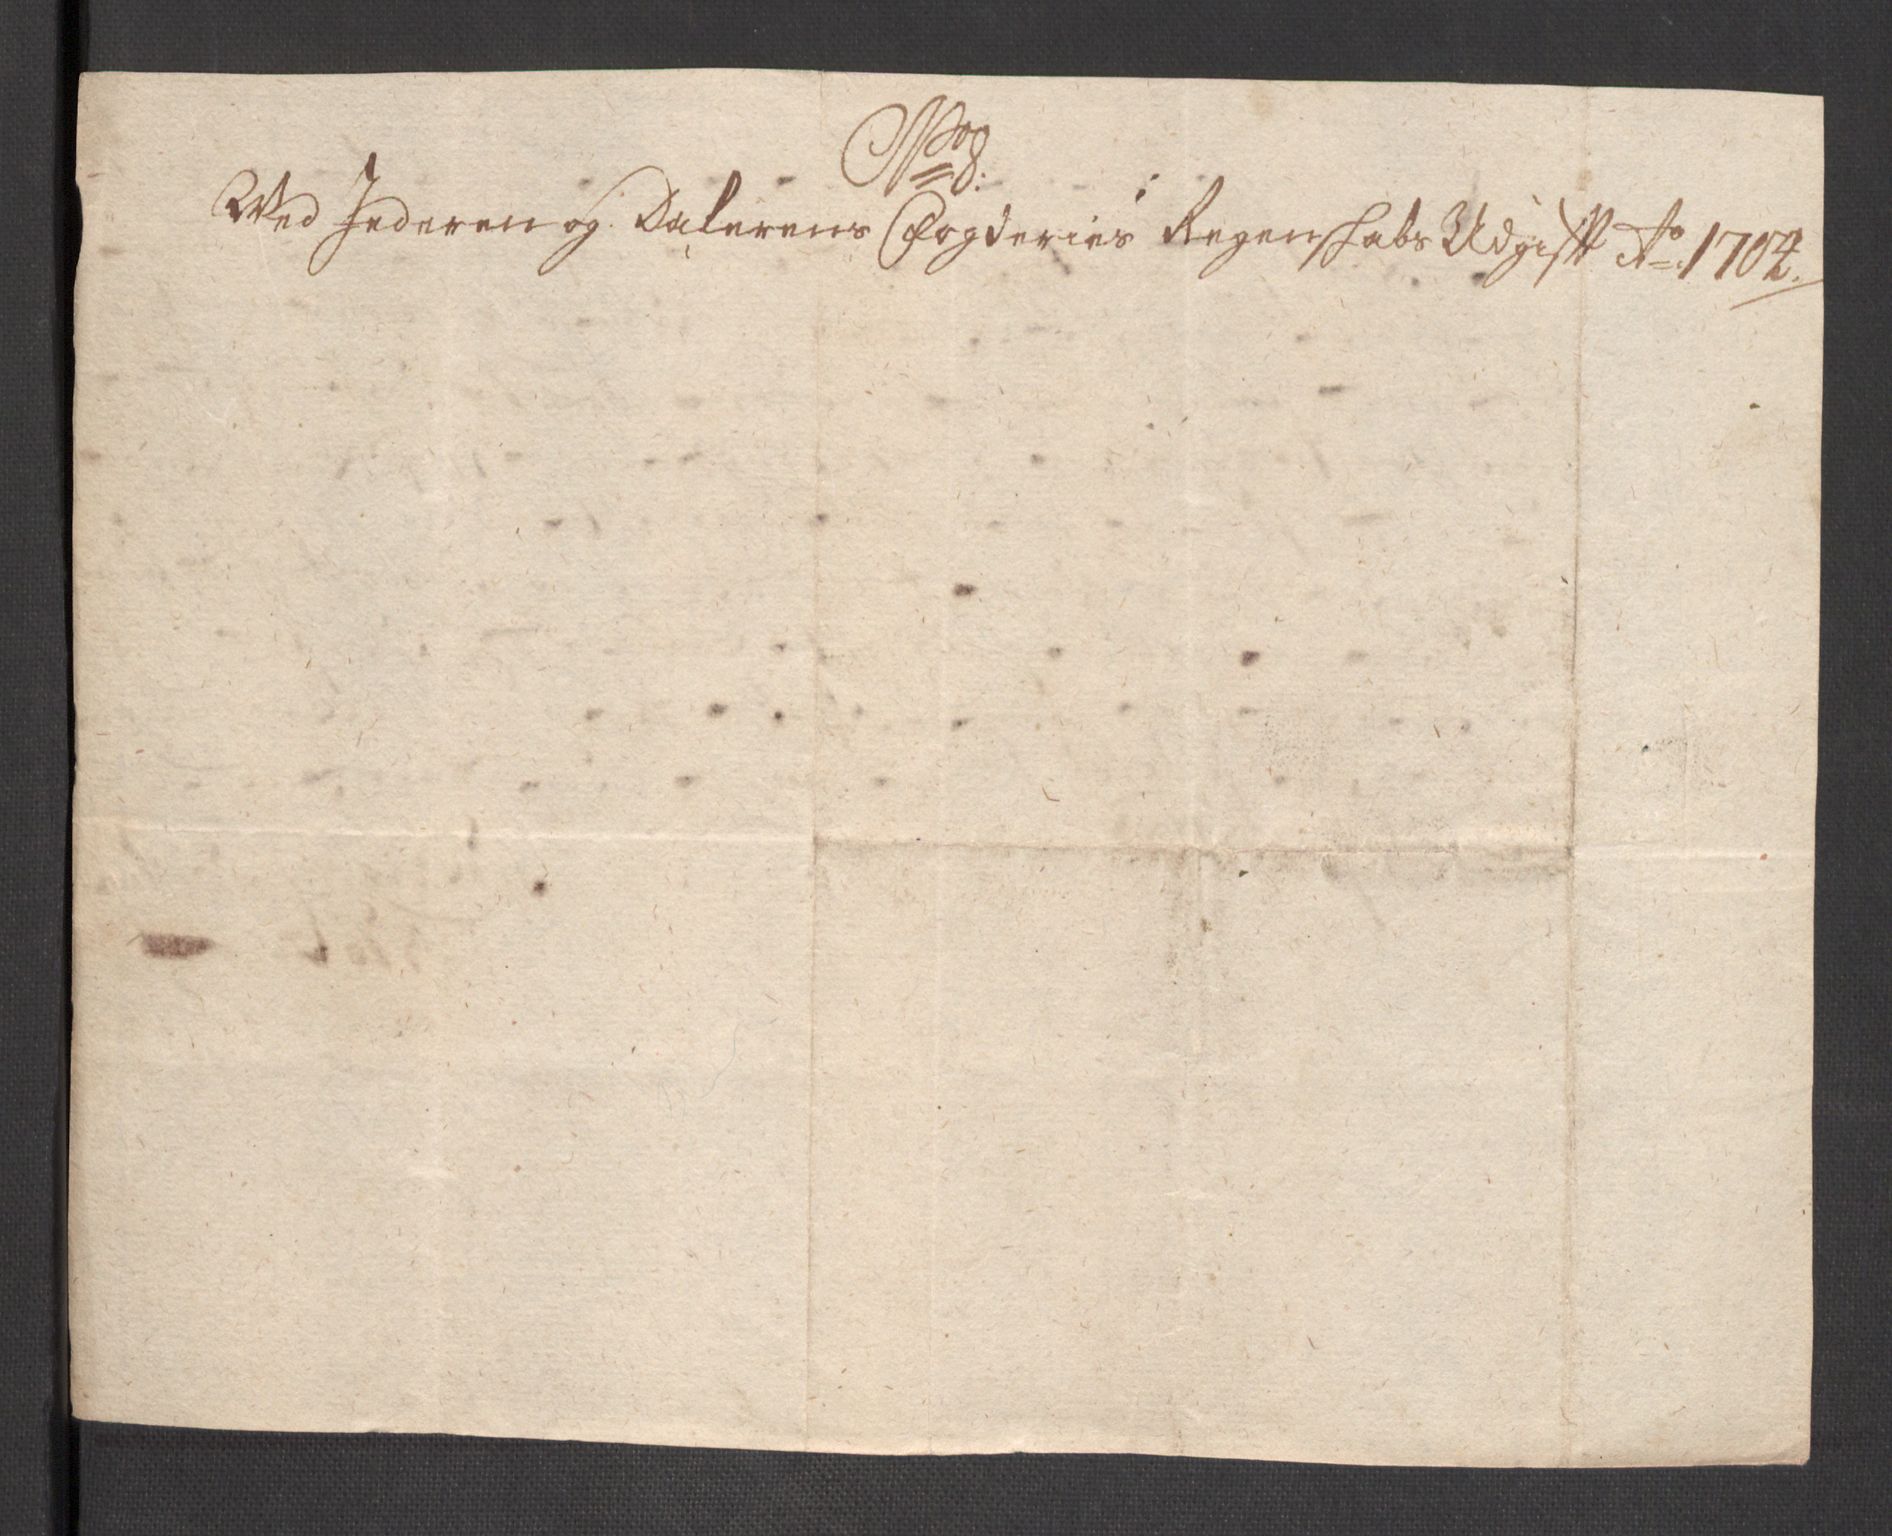 No 8:
Wed Jederen og Dalerens Fogderies Regenskabs Udgifft Ao 1704.